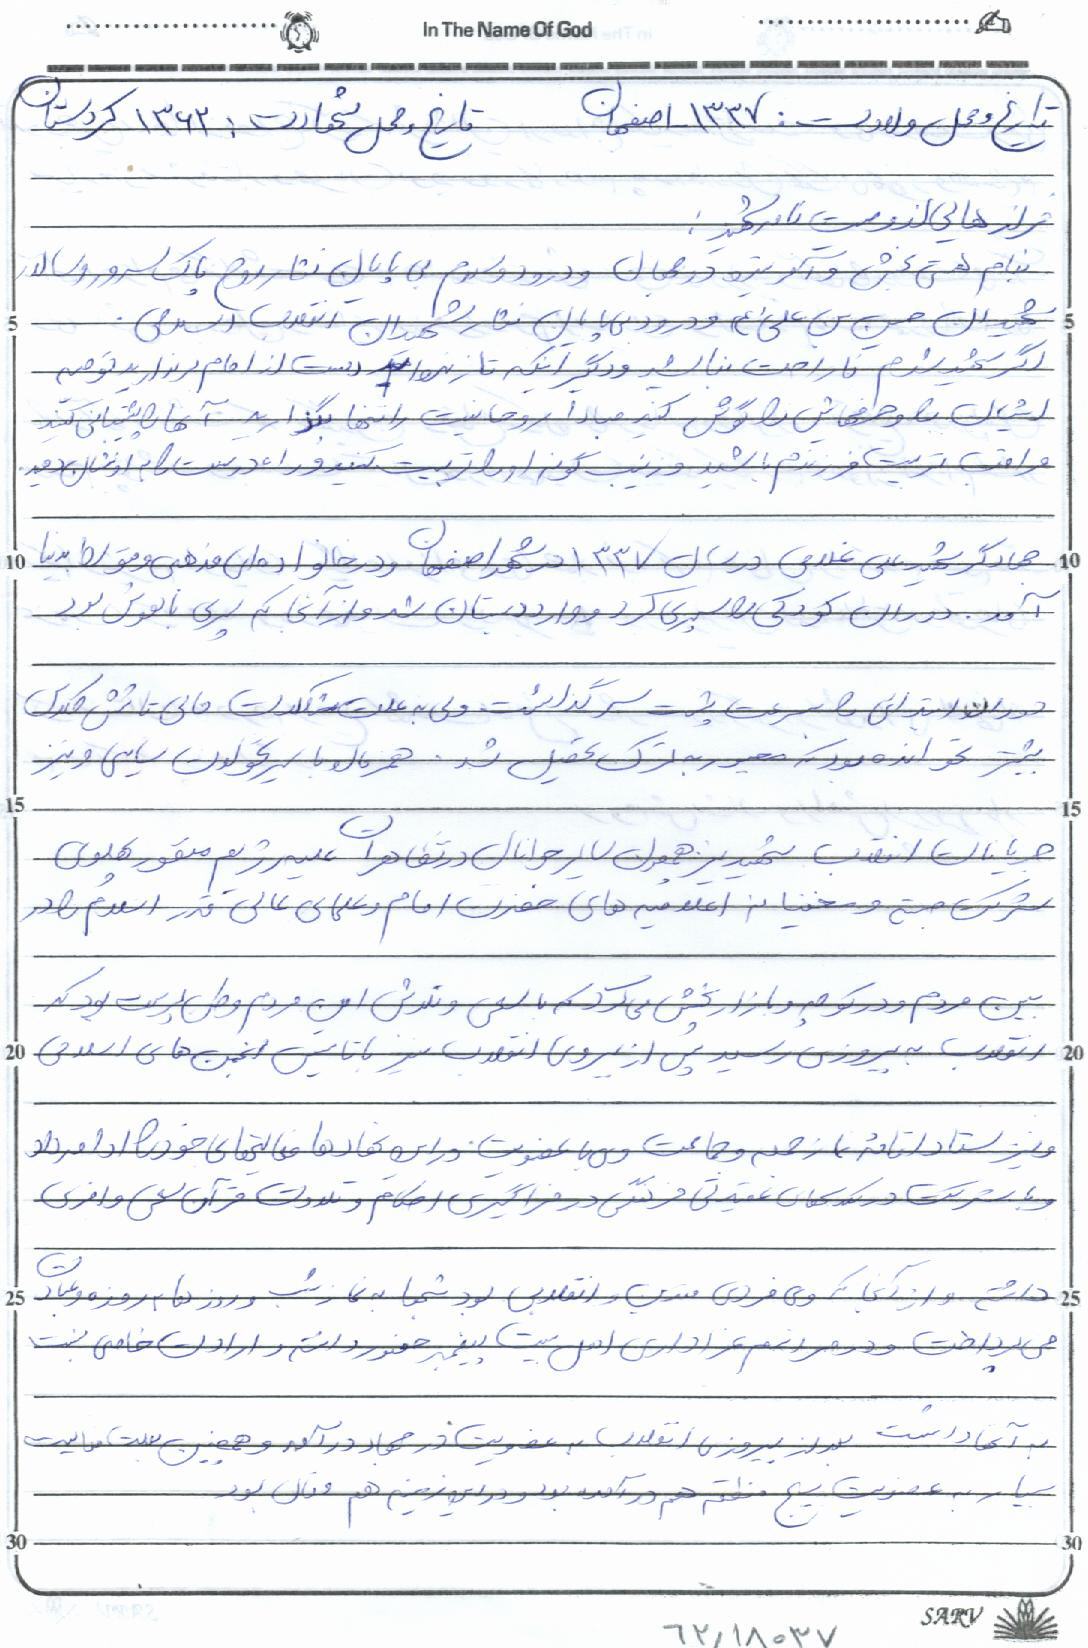 In The Name Of God
تاریخ و محل ولادت : ۱۳۳۷ اصفهان تاریخ و محل شهادت : ۱۳۶۲ کردستان
فرازهایی از وصیت نامه شهید :
بنام هستی بخش و آفریننده جهان و درود و سلام بی پایان نثار روح پاک سرور و سالار
شهیدان حسین بن علی (ع) و درود بی پایان نثار شهیدان انقلاب اسلامی .
اگر شهید شدم ناراحت نباشید و دیگر اینکه تا زنده‌اید دست از امام برندارید توصیه
ایشان را و حرفهایش را گوش کنید مبادا روحانیت را تنها بگذارید آنها را پشتیبانی کنید
مراقب تربیت فرزندم باشید و زینب گونه او را تربیت کنید و راه درست را به او نشان دهید.
جهادگر شهید علی غلامی در سال ۱۳۳۷ در شهر اصفهان و در خانواده‌ای مذهبی و متوسط بدنیا
آمد . دوران کودکی را سپری کرد و وارد دبستان شد و از آنجا که پسری باهوش بود
دوران ابتدایی را بسرعت پشت سر گذاشت ولی به علت مشکلات مالی تا شش کلاس
بیشتر نخوانده بود که مجبور به ترک تحصیل شد . همزمان با سیر تحولات سیاسی و نیز
جریانات انقلاب شهید نیز همچون سایر جوانان در تظاهرات علیه رژیم منفور پهلوی
شرکت جسته و مخفیانه اعلامیه های حضرت امام و علمای عالی قدر اسلام را در
بین مردم و در کوچه و بازار پخش می‌کرد که با سعی و تلاش این مردم وطن پرست بود که
انقلاب به پیروزی رسید پس از پیروزی انقلاب نیز با تاسیس انجمن های اسلامی
و نیز ستاد اقامه نماز جمعه و جماعت وی با عضویت در این نهادها فعالیتهای خود را ادامه داد
و با شرکت در کلاسهای عقیدتی فرهنگی در فراگیری احکام و تلاوت قرآن سعی وافری
داشته و از آنجا که وی فردی متدین و انقلابی بود شبها به نماز شب و روزها به روزه و عبادت
می پرداخت و در مراسم عزاداری اهل بیت پیغمبر حضور داشته و ارادت خاصی نسبت
به آنها داشت بعد از پیروزی انقلاب به عضویت در جهاد درآمد و همچنین بعلت فعالیت
بسیار به عضویت بسیج منطقه هم درآمده بود و در این زمینه هم فعال بود.
5 5
10 10
15 15
20 20
25 25
30 30
SARV
۶۲/۱۸۰۳۷